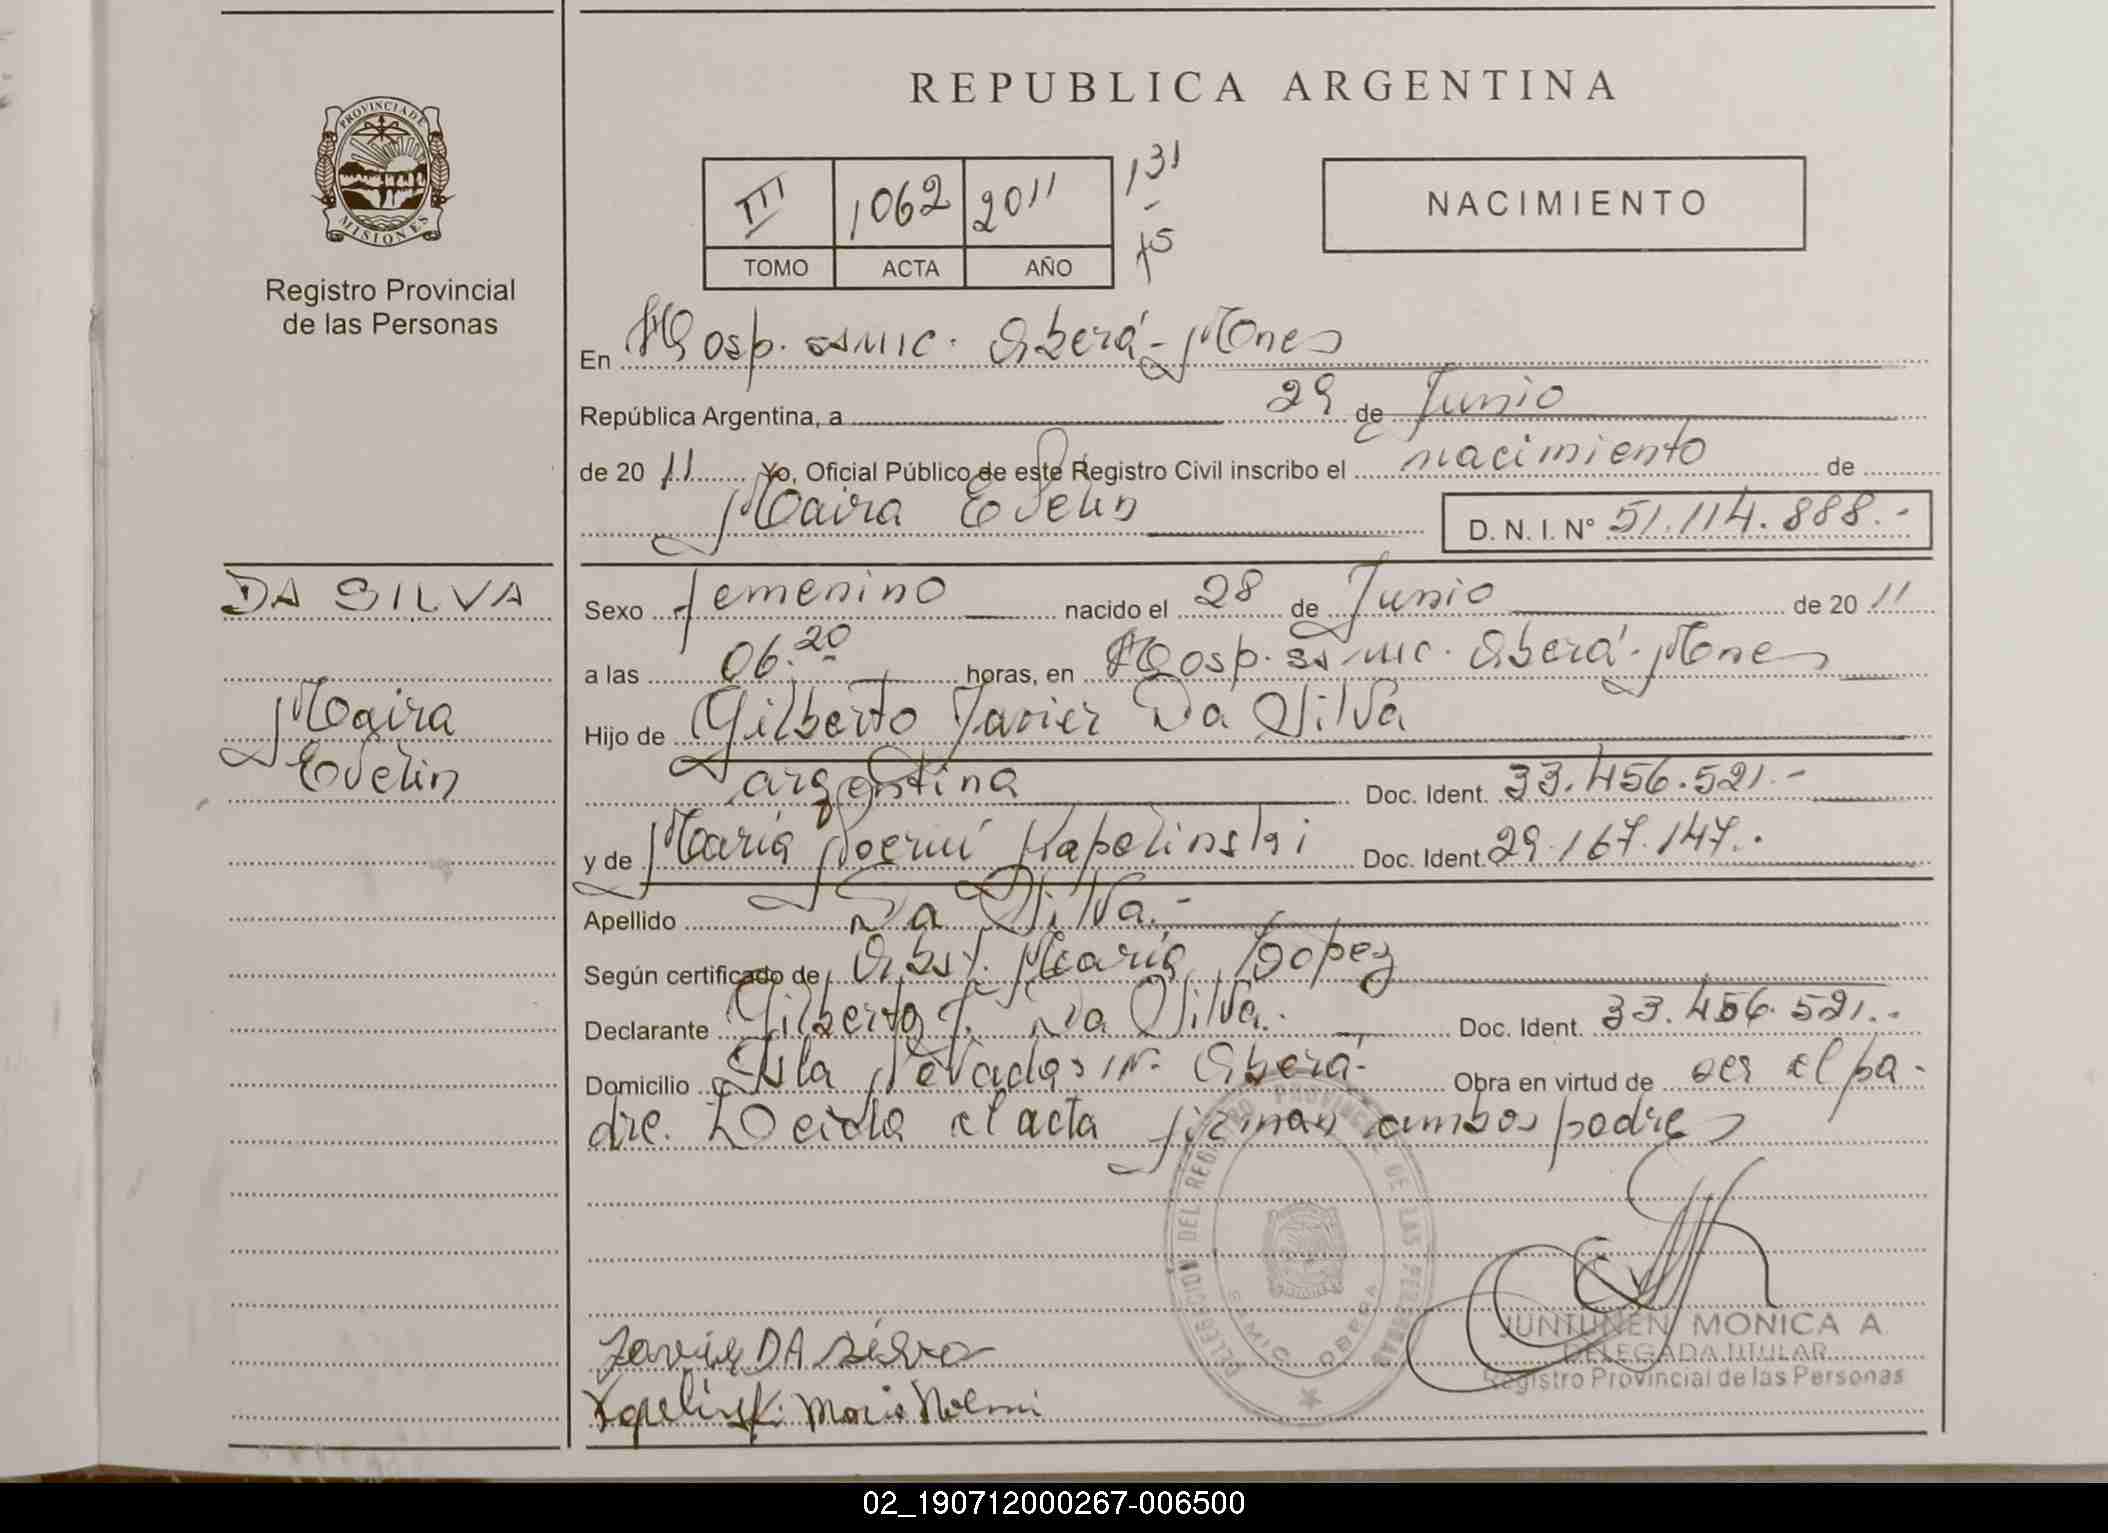 REPUBLICA ARGENTINA
PROVINCIA DE
MISIONES
Registro Provincial
de las Personas
III 1062 2011 131
TOMO ACTA AÑO 75
NACIMIENTO
En Hosp. SSMIC. Oberá-Mones
República Argentina, a 29 de Junio
de 20 11 Yo, Oficial Público de este Registro Civil inscribo el nacimiento de
Maira Evelin D. N. I. N° 51.114.888.-
DA SILVA
Maira
Evelin
Sexo femenino nacido el 28 de Junio de 20 11
a las 06.20 horas, en Hosp. SSMIC. Oberá-Mones
Hijo de Gilberto Javier Da Silva
argentina Doc. Ident. 33.456.521.-
y de María Noemí Kapelinski Doc. Ident. 29.167.147.-
Apellido Da Silva.-
Según certificado de Obst. María Lopez
Declarante Gilberto J. Da Silva.- Doc. Ident. 33.456.521.-
Domicilio Isla Oberá- Obra en virtud de ser el pa-
dre. Leida el acta firman ambos padres
DELEGACION DEL REGISTRO PROVINCIAL DE LAS PERSONAS
SAMIC OBERA
Javier DA silva
Kapelinski Maria Noemi
JUNTUNEN MONICA A.
DELEGADA TITULAR
Registro Provincial de las Personas
02_190712000267-006500